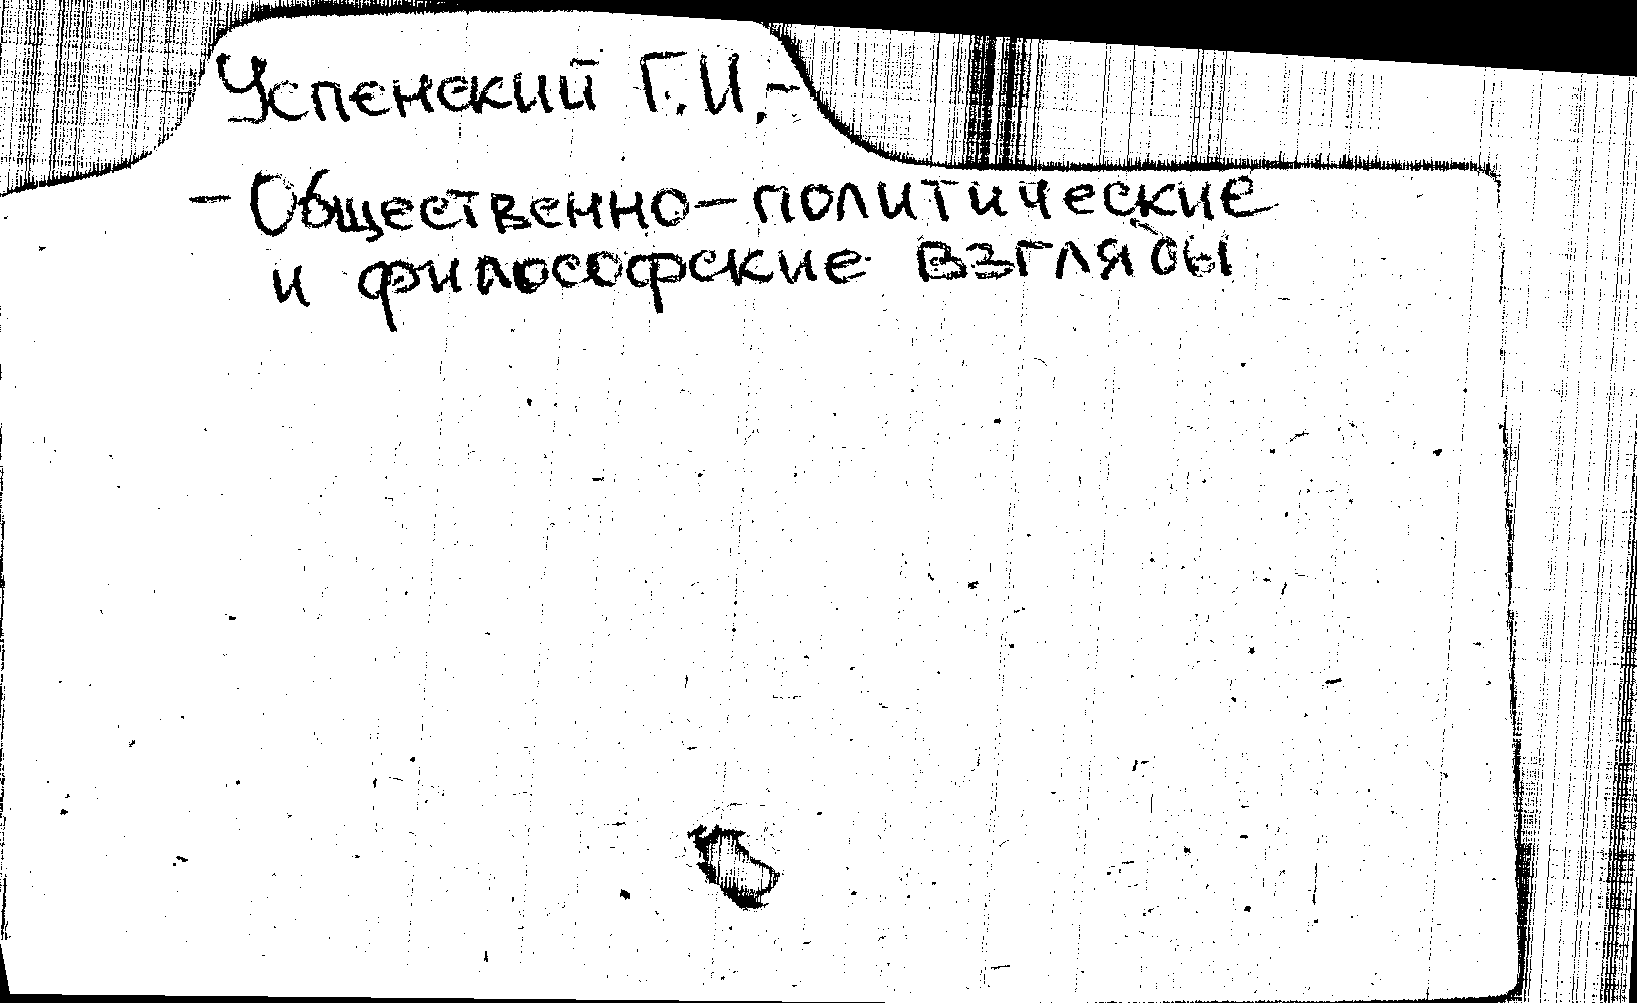 Успенский Г.И.-
- Общественно-политические
и философские взгляды